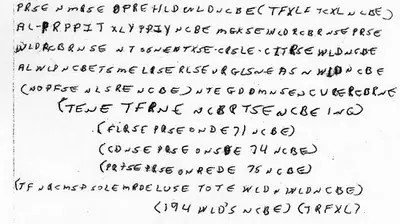 PRSE N MRSE OPREHLDWLDNCBE(TFXLF TCXL NCBE)
AL-PRPPIT XLYPPIYNCBE MGKSEWLDRCBRNSEPRSE
WLDRCBRNSE NTSSNENTXSE-CRSLE-CITRSEWLDNCBE
ALWLDNCBETSMELRSERLSEURGLSNEASNWLDNCBE
(NOPFSE NLSRENCBE)NTEGDDMNSENCURERCBRNE
(TENE TFRNE NCBRTSENCBE ING)
(FLRSE PRSE ONDE 71 NCBE)
(CDNSE PRSE ONSDE 74 NCBE)
(PRTSE PRSE ONREDE 75 NCBE)
(TFNQCMSP SOLE MRDE LUSE TOTE WLDN WLDNCBE)
(194 WLD'S NCBE)(TRFXL)